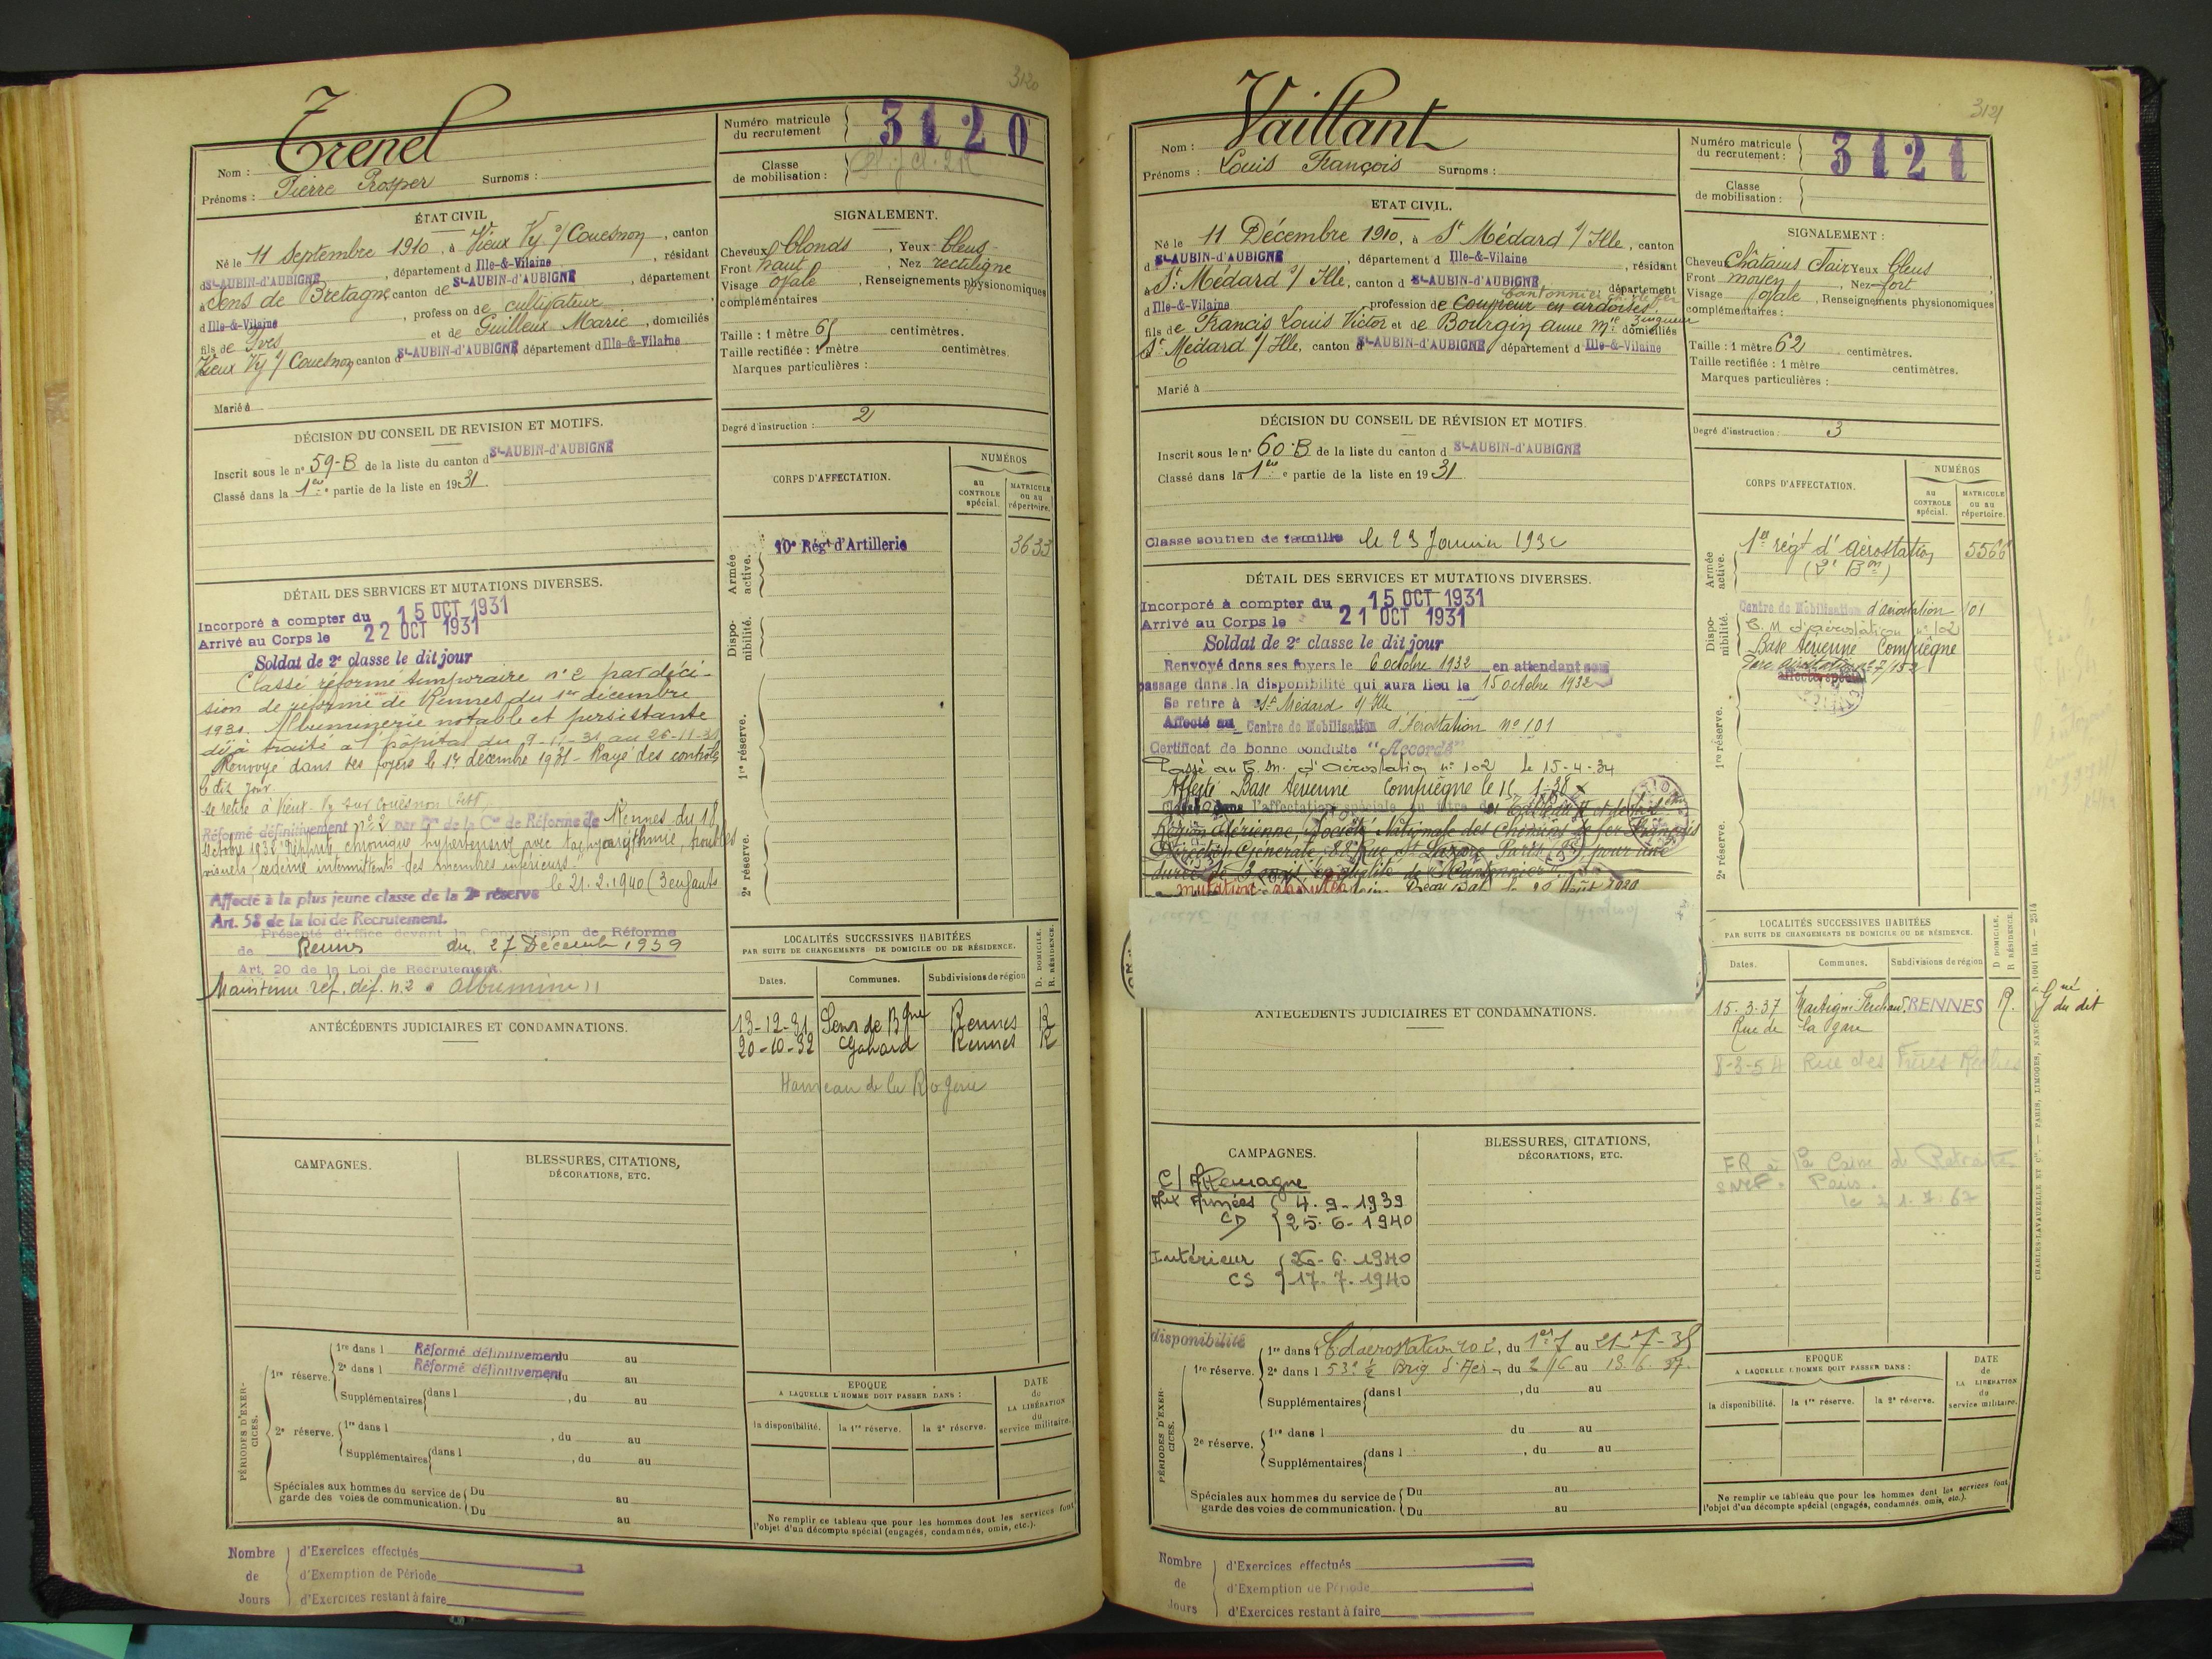 3120
Nom : Trenel
Prénoms : Pierre Prosper Surnoms :
Numéro matricule
du recrutement
3120
Classe
de mobilisation :
ÉTAT CIVIL
Né le 11 Septembre 1910, à Vieux Vy s/ Couesnon, canton
d St-AUBIN-d'AUBIGNÉ, département d Ille-&-Vilaine, résidant
à Sens de Bretagne, canton de St-AUBIN-d'AUBIGNÉ, département
d Ille-&-Vilaine, profession de cultivateur
fils de Yves et de Guilleux Marie, domiciliés
Vieux Vy s/ Couesnon canton d St-AUBIN-d'AUBIGNÉ département d Ille-&-Vilaine
Marié à
SIGNALEMENT.
Cheveux blonds, Yeux bleus
Front haut, Nez rectiligne
Visage ovale, Renseignements physionomiques
complémentaires
Taille : 1 mètre 65 centimètres.
Taille rectifiée : 1 mètre centimètres
Marques particulières :
Degré d'instruction : 2
DÉCISION DU CONSEIL DE REVISION ET MOTIFS.
Inscrit sous le n° 59-B de la liste du canton d St-AUBIN-d'AUBIGNÉ
Classé dans la 1ère partie de la liste en 1931.
DÉTAIL DES SERVICES ET MUTATIONS DIVERSES.
Incorporé à compter du 15 OCT 1931
Arrivé au Corps le 22 OCT 1931
Soldat de 2e classe le dit jour
Classé réformé temporaire n° 2 par déci-
sion de réforme de Rennes du 1er décembre
1931. Albuminerie notable et persistante
déjà traité à l'hôpital du 9-11-31 au 26-11-31
Renvoyé dans ses foyers le 1er décembre 1931 - Rayé des contrôles
le dit jour
se retire à Vieux-Vy sur Couesnon
Réformé définitivement n° 2 par Con de la Con de Réforme de Rennes du 18
Octobre 1932 "Néphrite chronique hypertensive avec tachyarythmie, troubles
visuels, oedème intermittents des membres inférieurs."
le 21.2.1940 (3 enfants
Affecté à la plus jeune classe de la 2e réserve
Art. 58 de la loi de Recrutement.
Présenté d'office devant la Commission de Réforme
de Rennes du 27 Décembre 1939
Art. 20 de la Loi de Recrutement.
Maintenu réf. déf. n.2 " albumine "
CORPS D'AFFECTATION.
NUMÉROS
au
CONTROLE
spécial.
MATRICULE
ou au
répertoire.
Armée
active.
10e Régt d'Artillerie 3633
Dispo-
nibilité.
1re réserve.
2e réserve.
LOCALITÉS SUCCESSIVES HABITÉES
PAR SUITE DE CHANGEMENTS DE DOMICILE OU DE RÉSIDENCE.
Dates. Communes. Subdivisions de région D. DOMICILE. R. RÉSIDENCE.
13-12-31 Sens de Bgne Rennes R
20-10-32 Gahard Rennes R
Hameau de la Rogerie
ANTÉCÉDENTS JUDICIAIRES ET CONDAMNATIONS.
CAMPAGNES.
BLESSURES, CITATIONS,
DÉCORATIONS, ETC.
PÉRIODES D'EXER-
CICES.
1re réserve.
1re dans l Réformé définitivement du au
2e dans l Réformé définitivement du au
Supplémentaires dans l , du au
2e réserve.
1re dans l , du au
Supplémentaires dans l , du au
Spéciales aux hommes du service de
garde des voies de communication.
Du au
Du au
EPOQUE
A LAQUELLE L'HOMME DOIT PASSER DANS :
la disponibilité. la 1re réserve. la 2e réserve.
DATE
de
LA LIBÉRATION
du
service militaire.
Ne remplir ce tableau que pour les hommes dont les services font
l'objet d'un décompte spécial (engagés, condamnés, omis, etc.).
Nombre
de
Jours
d'Exercices effectués
d'Exemption de Période
d'Exercices restant à faire
3121
Nom : Vaillant
Prénoms : Louis François Surnoms :
Numéro matricule
du recrutement :
3121
Classe
de mobilisation :
ETAT CIVIL.
Né le 11 Décembre 1910, à St Médard s/ Ille, canton
d St-AUBIN-d'AUBIGNÉ, département d Ille-&-Vilaine, résidant
à St Médard s/ Ille, canton d St-AUBIN-d'AUBIGNÉ, département
Cantonnier ch. de fer
d Ille-&-Vilaine, profession de coupeur en ardoises, zingueur
fils de Francis Louis Victor et de Bourgin Anne Mie domiciliés
St Médard s/ Ille, canton d St-AUBIN-d'AUBIGNÉ, département d Ille-&-Vilaine
Marié à
SIGNALEMENT :
Cheveux Châtains Clair Yeux bleus
Front moyen, Nez fort
Visage ovale, Renseignements physionomiques
complémentaires :
Taille : 1 mètre 62 centimètres.
Taille rectifiée : 1 mètre centimètres.
Marques particulières :
Degré d'instruction : 3
DÉCISION DU CONSEIL DE RÉVISION ET MOTIFS.
Inscrit sous le n° 60-B de la liste du canton d St-AUBIN-d'AUBIGNÉ
Classé dans la 1ère partie de la liste en 1931
Classé soutien de famille le 23 Janvier 1932
DÉTAIL DES SERVICES ET MUTATIONS DIVERSES.
Incorporé à compter du 15 OCT 1931
Arrivé au Corps le 21 OCT 1931
Soldat de 2e classe le dit jour
Renvoyé dans ses foyers le 6 octobre 1932 en attendant son
passage dans la disponibilité qui aura lieu le 15 octobre 1932
Se retire à St Médard s/ Ille
Affecté au Centre de Mobilisation d'Aérostation n° 101
Certificat de bonne conduite "Accordé"
Passé au C.M. d'Aérostation n° 102 le 15-4-34
Affecté Base Aérienne Compiègne le 15-1-38
Classé dans l'affectation spéciale au titre du Tableau
Région Aérienne, Société Nationale des Chemins de fer Français
Direction Générale, 88 Rue St Lazare Paris pour une
durée de en qualité de Cantonnier
mutation annulée
CORPS D'AFFECTATION.
NUMÉROS
au
CONTROLE
spécial.
MATRICULE
ou au
répertoire.
Armée
active.
1er régt d'aérostation 5566
(2e Bon)
Dispo-
nibilité.
Centre de Mobilisation d'aérostation 101
C.M d'aérostation n° 102
Base Aérienne Compiègne
Parc aérostation n° 7/152
affecté spécial
1re réserve.
2e réserve.
LOCALITÉS SUCCESSIVES HABITÉES
PAR SUITE DE CHANGEMENTS DE DOMICILE OU DE RÉSIDENCE.
Dates. Communes. Subdivisions de région D DOMICILE. R RÉSIDENCE.
15-3-37 Martigné-Ferchaud RENNES R. Gné du dit
Rue de la gare
8-3-54 Rue des Frères
FR à la Caisse de Retraite
SNCF. Paris.
ANTÉCÉDENTS JUDICIAIRES ET CONDAMNATIONS.
CAMPAGNES.
C/ Allemagne
Aux Armées 4.9.1939
CD 25.6.1940
Intérieur 26.6.1940
CS 17.7.1940
BLESSURES, CITATIONS,
DÉCORATIONS, ETC.
PÉRIODES D'EXER-
CICES.
disponibilité
1re réserve.
1re dans l C d'aérostation 102, du 1er 7 au 21-7-35
2e dans l 53e ½ Brig. d'Aér., du 2/6 au 18.6.37.
Supplémentaires dans l , du au
2e réserve.
1re dans l du au
Supplémentaires dans l , du au
Spéciales aux hommes du service de
garde des voies de communication.
Du au
Du au
EPOQUE
A LAQUELLE L'HOMME DOIT PASSER DANS :
la disponibilité. la 1re réserve. la 2e réserve.
DATE
de
LA LIBÉRATION
du
service militaire.
Ne remplir ce tableau que pour les hommes dont les services font
l'objet d'un décompte spécial (engagés, condamnés, omis, etc.).
Nombre
de
Jours
d'Exercices effectués
d'Exemption de Période
d'Exercices restant à faire
CHARLES-LAVAUZELLE ET Cie. — PARIS, LIMOGES, NANCY